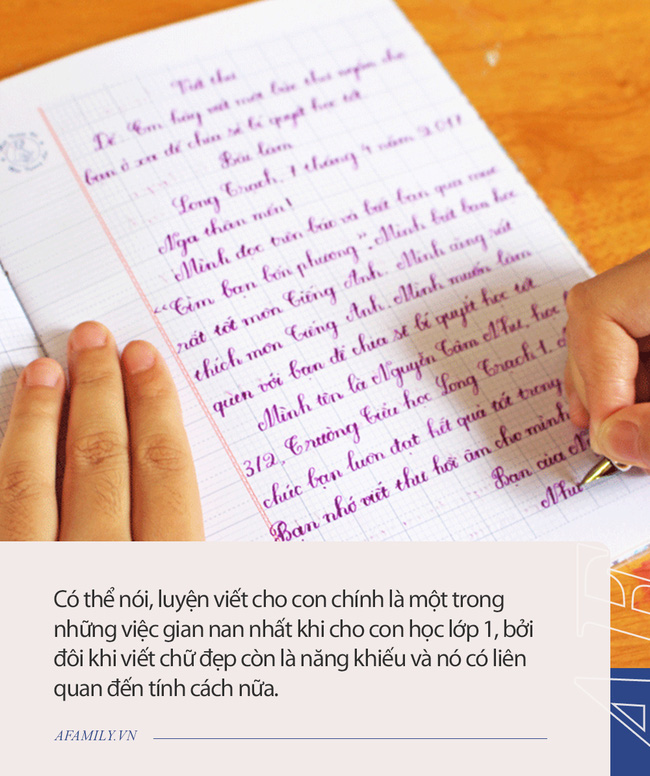 Viết thư
Đề: Em hãy viết một bức thư ngắn cho
bạn ở xa để chia sẻ bí quyết học tốt.
Bài làm
Long Trạch, 1 tháng 4 năm 2011
Nga thân mến!
Mình đọc trên báo và biết bạn qua mục
"Tìm bạn bốn phương". Mình biết bạn học
rất tốt môn Tiếng Anh. Mình cũng rất
thích môn Tiếng Anh. Mình muốn làm
quen với bạn để chia sẻ bí quyết học tốt
Mình tên là Nguyễn Tâm Như, học
3/2, Trường Tiểu học Long Trạch 1.
chúc bạn luôn đạt kết quả tốt trong
Bạn nhớ viết thư hồi âm cho mình
Bạn của
Như
Có thể nói, luyện viết cho con chính là một trong
những việc gian nan nhất khi cho con học lớp 1, bởi
đôi khi viết chữ đẹp còn là năng khiếu và nó có liên
quan đến tính cách nữa.
AFAMILY.VN